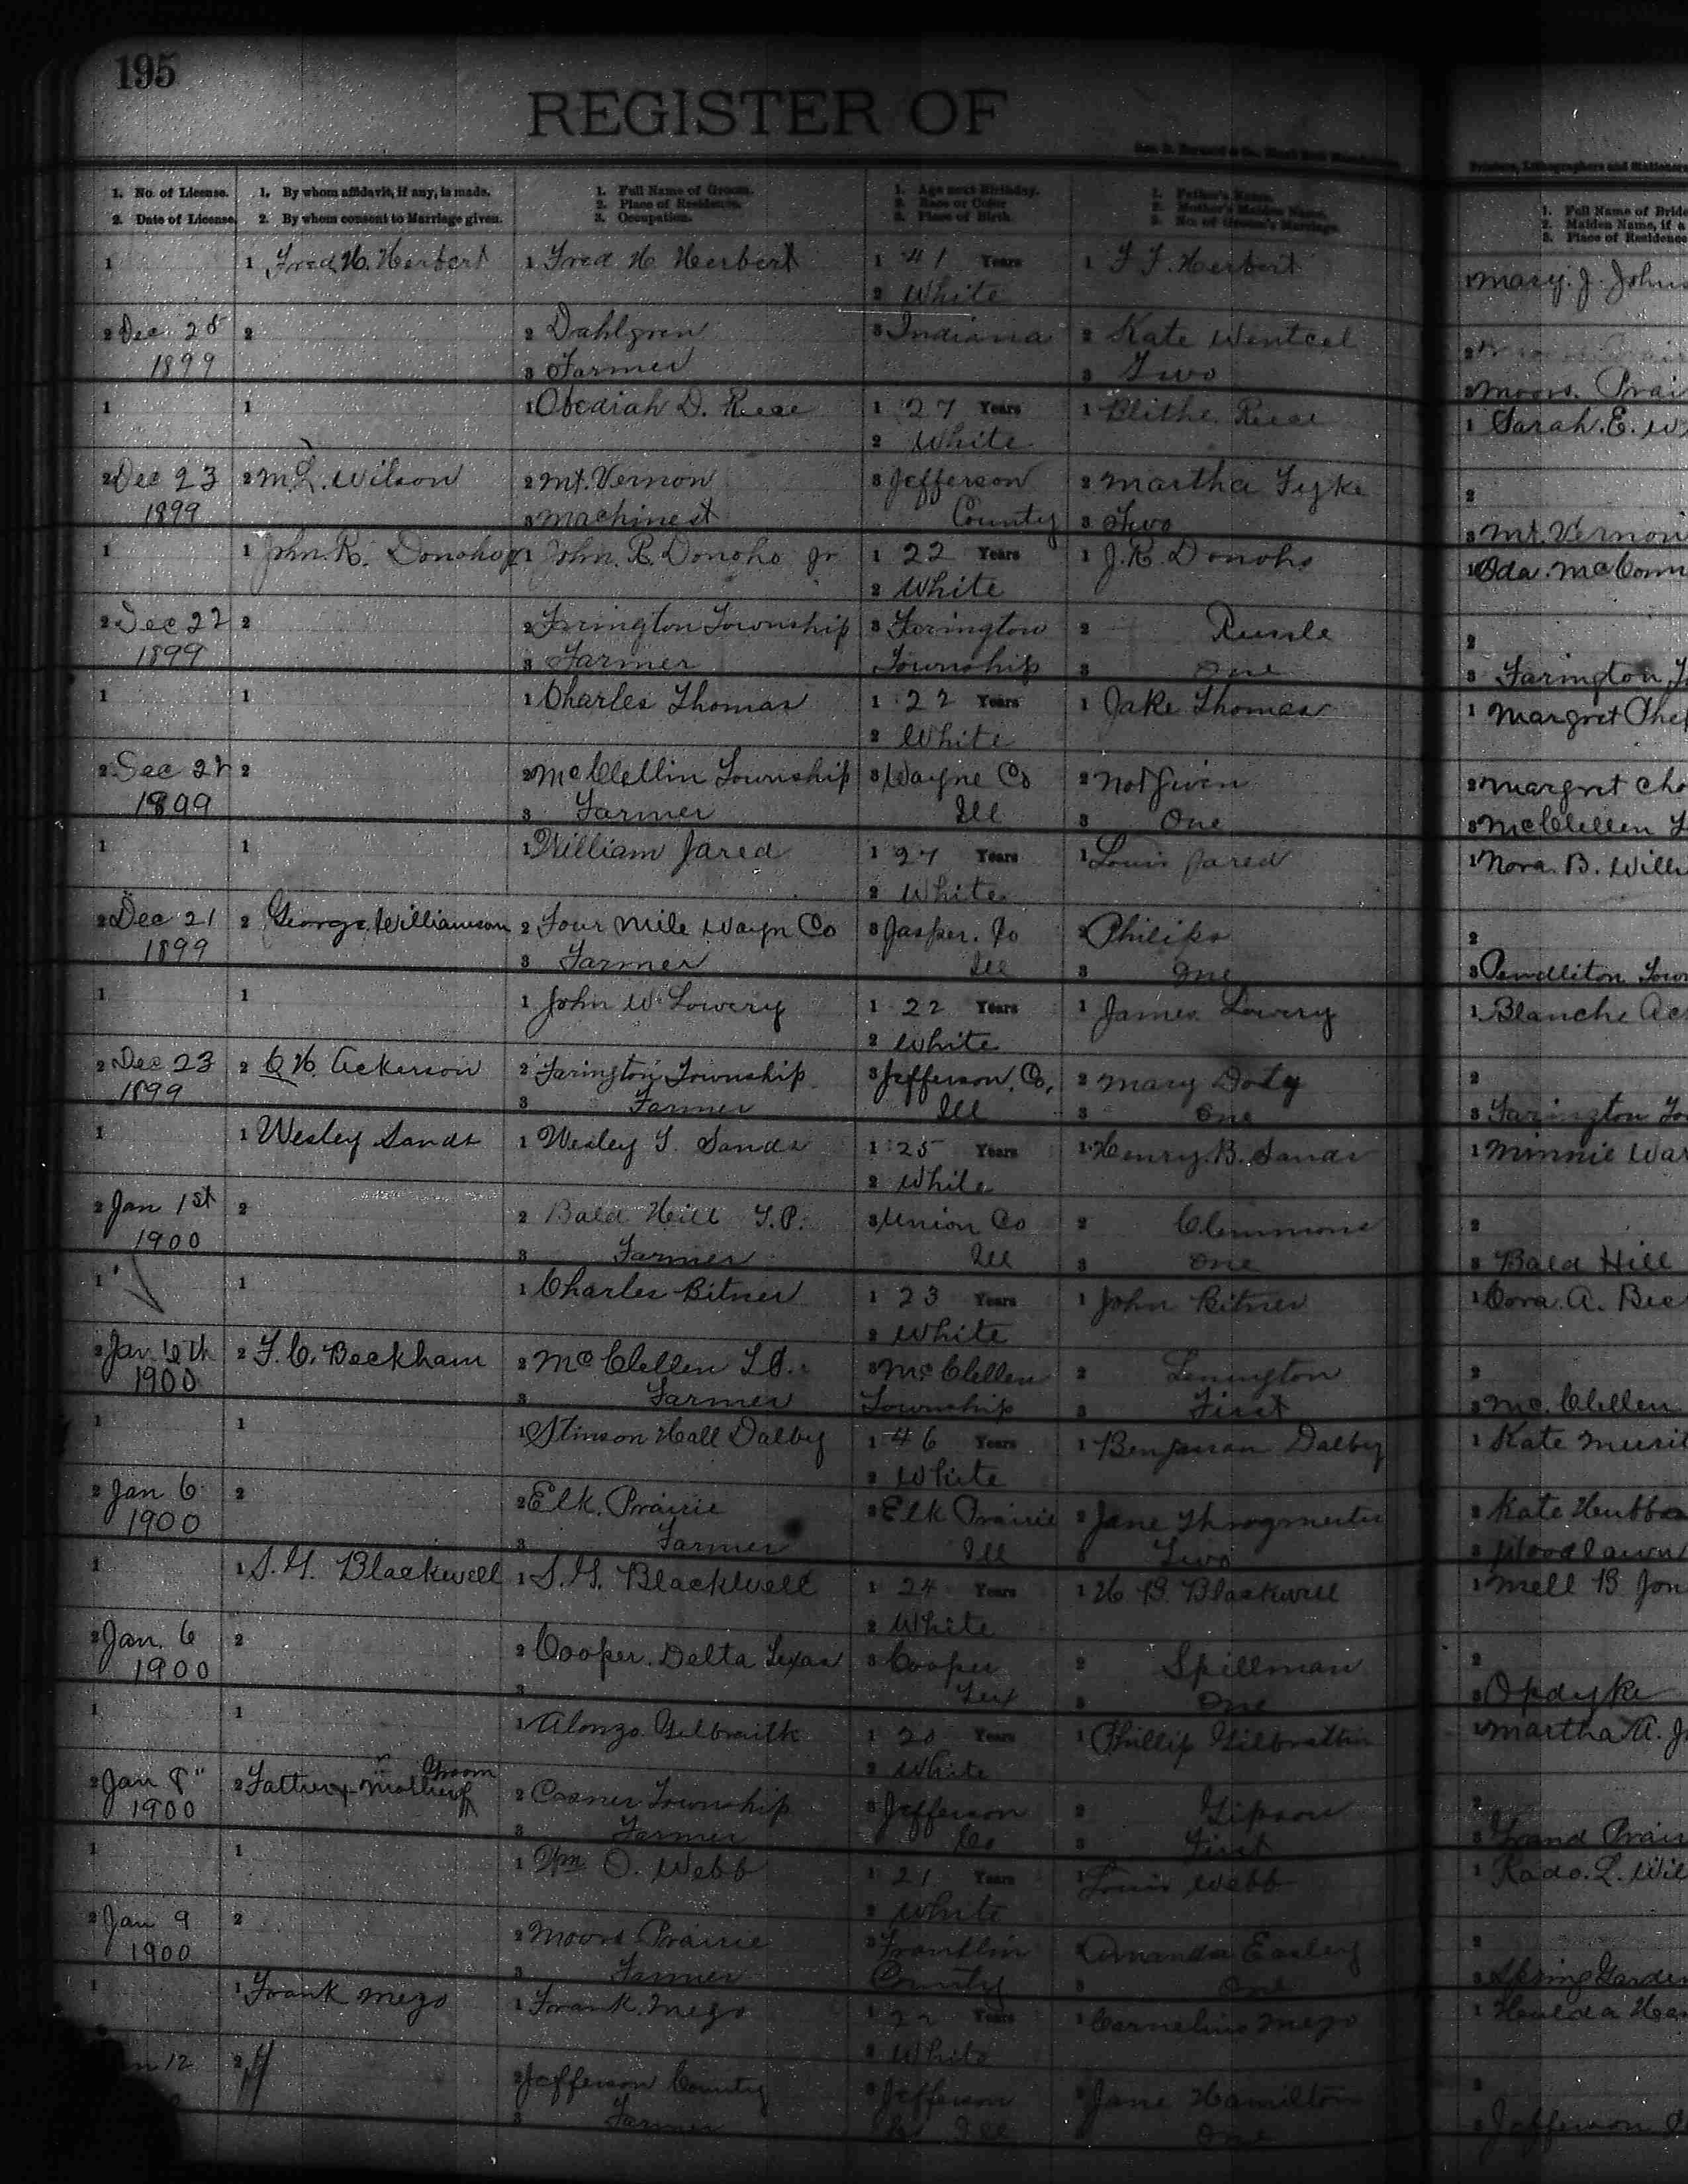 195
REGISTER OF
1. No. of License.
2. Date of License.
1. By whom affidavit, if any, is made.
2. By whom consent to Marriage given.
1. Full Name of Groom.
2. Place of Residence.
3. Occupation.
1. Age next Birthday.
2. Race or Color
3. Place of Birth
1. Father's Name.
2. Mother's Maiden Name.
3. No. of Groom's Marriage.
Printers, Lithographers and Stationers
1. Full Name of Bride
2. Maiden Name, if a
3. Place of Residence
1 1 Fred H. Herbert 1 Fred H Herbert 1 41 Years 1 F F. Herbert 1 Mary. J. Johns
2 White
2 Dec 25 2 2 Dahlgren 3 Indiana 2 Kate Wentcel 2
1899 3 Farmer 3 Two 3 Moors. Prai
1 1 1 Obediah D. Reese 1 27 Years 1 Blithe Reese 1 Sarah. E. W
2 White
2 Dec 23 2 M. L. Wilson 2 Mt. Vernon 3 Jefferson 2 Martha Fyke 2
1899 3 Machinest County 3 Two 3 Mt. Vernon
1 1 John. R. Donoho 1 John. R. Donoho Jr 1 22 Years 1 J. R. Donoho 1 Oda. McConn
2 White
2 Dec 22 2 2 Frington Township 3 Ferington 2 Russle 2
1899 3 Farmer Township 3 One 3 Farington T
1 1 1 Charles Thomas 1 22 Years 1 Jake Thomas 1 Margret Che
2 White
2 Dec 2 2 2 McClellin Township 3 Wayne Co 2 not given 2 Margret Cho
1899 3 Farmer Ill 3 One 3 McClellen T
1 1 1 William Jared 1 27 Years 1 Louis Jared 1 Nora. B. Will
2 White
2 Dec 21 2 George. Williamson 2 Four Mile Wayn Co 3 Jasper. Co 2 Philips 2
1899 3 Farmer Ill 3 One 3 Pendliton Tow
1 1 1 John W. Lowery 1 22 Years 1 James. Lowery 1 Blanche Ac
2 White
2 Dec 23 2 C H. Ackerson 2 Farington Township 3 Jefferson. Co, 2 Mary Doty 2
1899 3 Farmer Ill 3 One 3 Farington To
1 1 Wesley Sands 1 Wesley T. Sands 1 25 Years 1 Henry. B. Sands 1 Minnie War
2 White
2 Jan 1st 2 2 Bald Hill T.P. 3 Union Co 2 Clemmons 2
1900 3 Farmer Ill 3 One 3 Bald Hill
1 1 1 Charles Bitner 1 23 Years 1 John Bitner 1 Cora. A. Bec
2 White
2 Jan 2 F. C. Beckham 2 McClellen 3 McClellen 2 Lenington 2
1900 3 Farmer Township 3 First 3 Mc. Clellen
1 1 1 Stinson Hall Dalby 1 46 Years 1 Benjaman Dalby 1 Kate
2 White
2 Jan 6 2 2 Elk. Prairie 3 Elk Prairie 2 Jane Throgmorter 2 Kate Hubba
1900 3 Farmer Ill 3 Two 3 Woodlawn
1 1 S. G. Blackwell 1 S. G. Blackwell 1 24 Years 1 H B. Blackwell 1 Mell B Jon
2 White
2 Jan. 6 2 2 Cooper. Delta Texas 3 Cooper 2 Spillman 2
1900 3 Tex 3 One 3 Opdyke
1 1 1 Alonzo Gilbraith 1 20 Years 1 Phillip 1 Martha A. J
2 White
Groom
2 Jan 8" 2 Father & Mother of 2 Casner Township 3 Jefferson 2 Gipson 2
1900 3 Farmer Co 3 First 3 Grand Prair
1 1 1 Wm O. Webb 1 21 Years 1 Louis Webb 1 Rado. L. Wil
2 White
2 Jan 9 2 2 Moors Prairie 3 Franklin 2 Amanda Easley 2
1900 3 Farmer County 3 One 3 Spring Garden
1 1 Frank Mezo 1 Frank. Mezo 1 22 Years 1 Cornelius Mezo 1 Hulda Hea
2 White
n 12 2 2 Jefferson County 3 Jefferson 2 Jane Hamilton 2
3 Farmer Co Ill 3 One 3 Jefferson